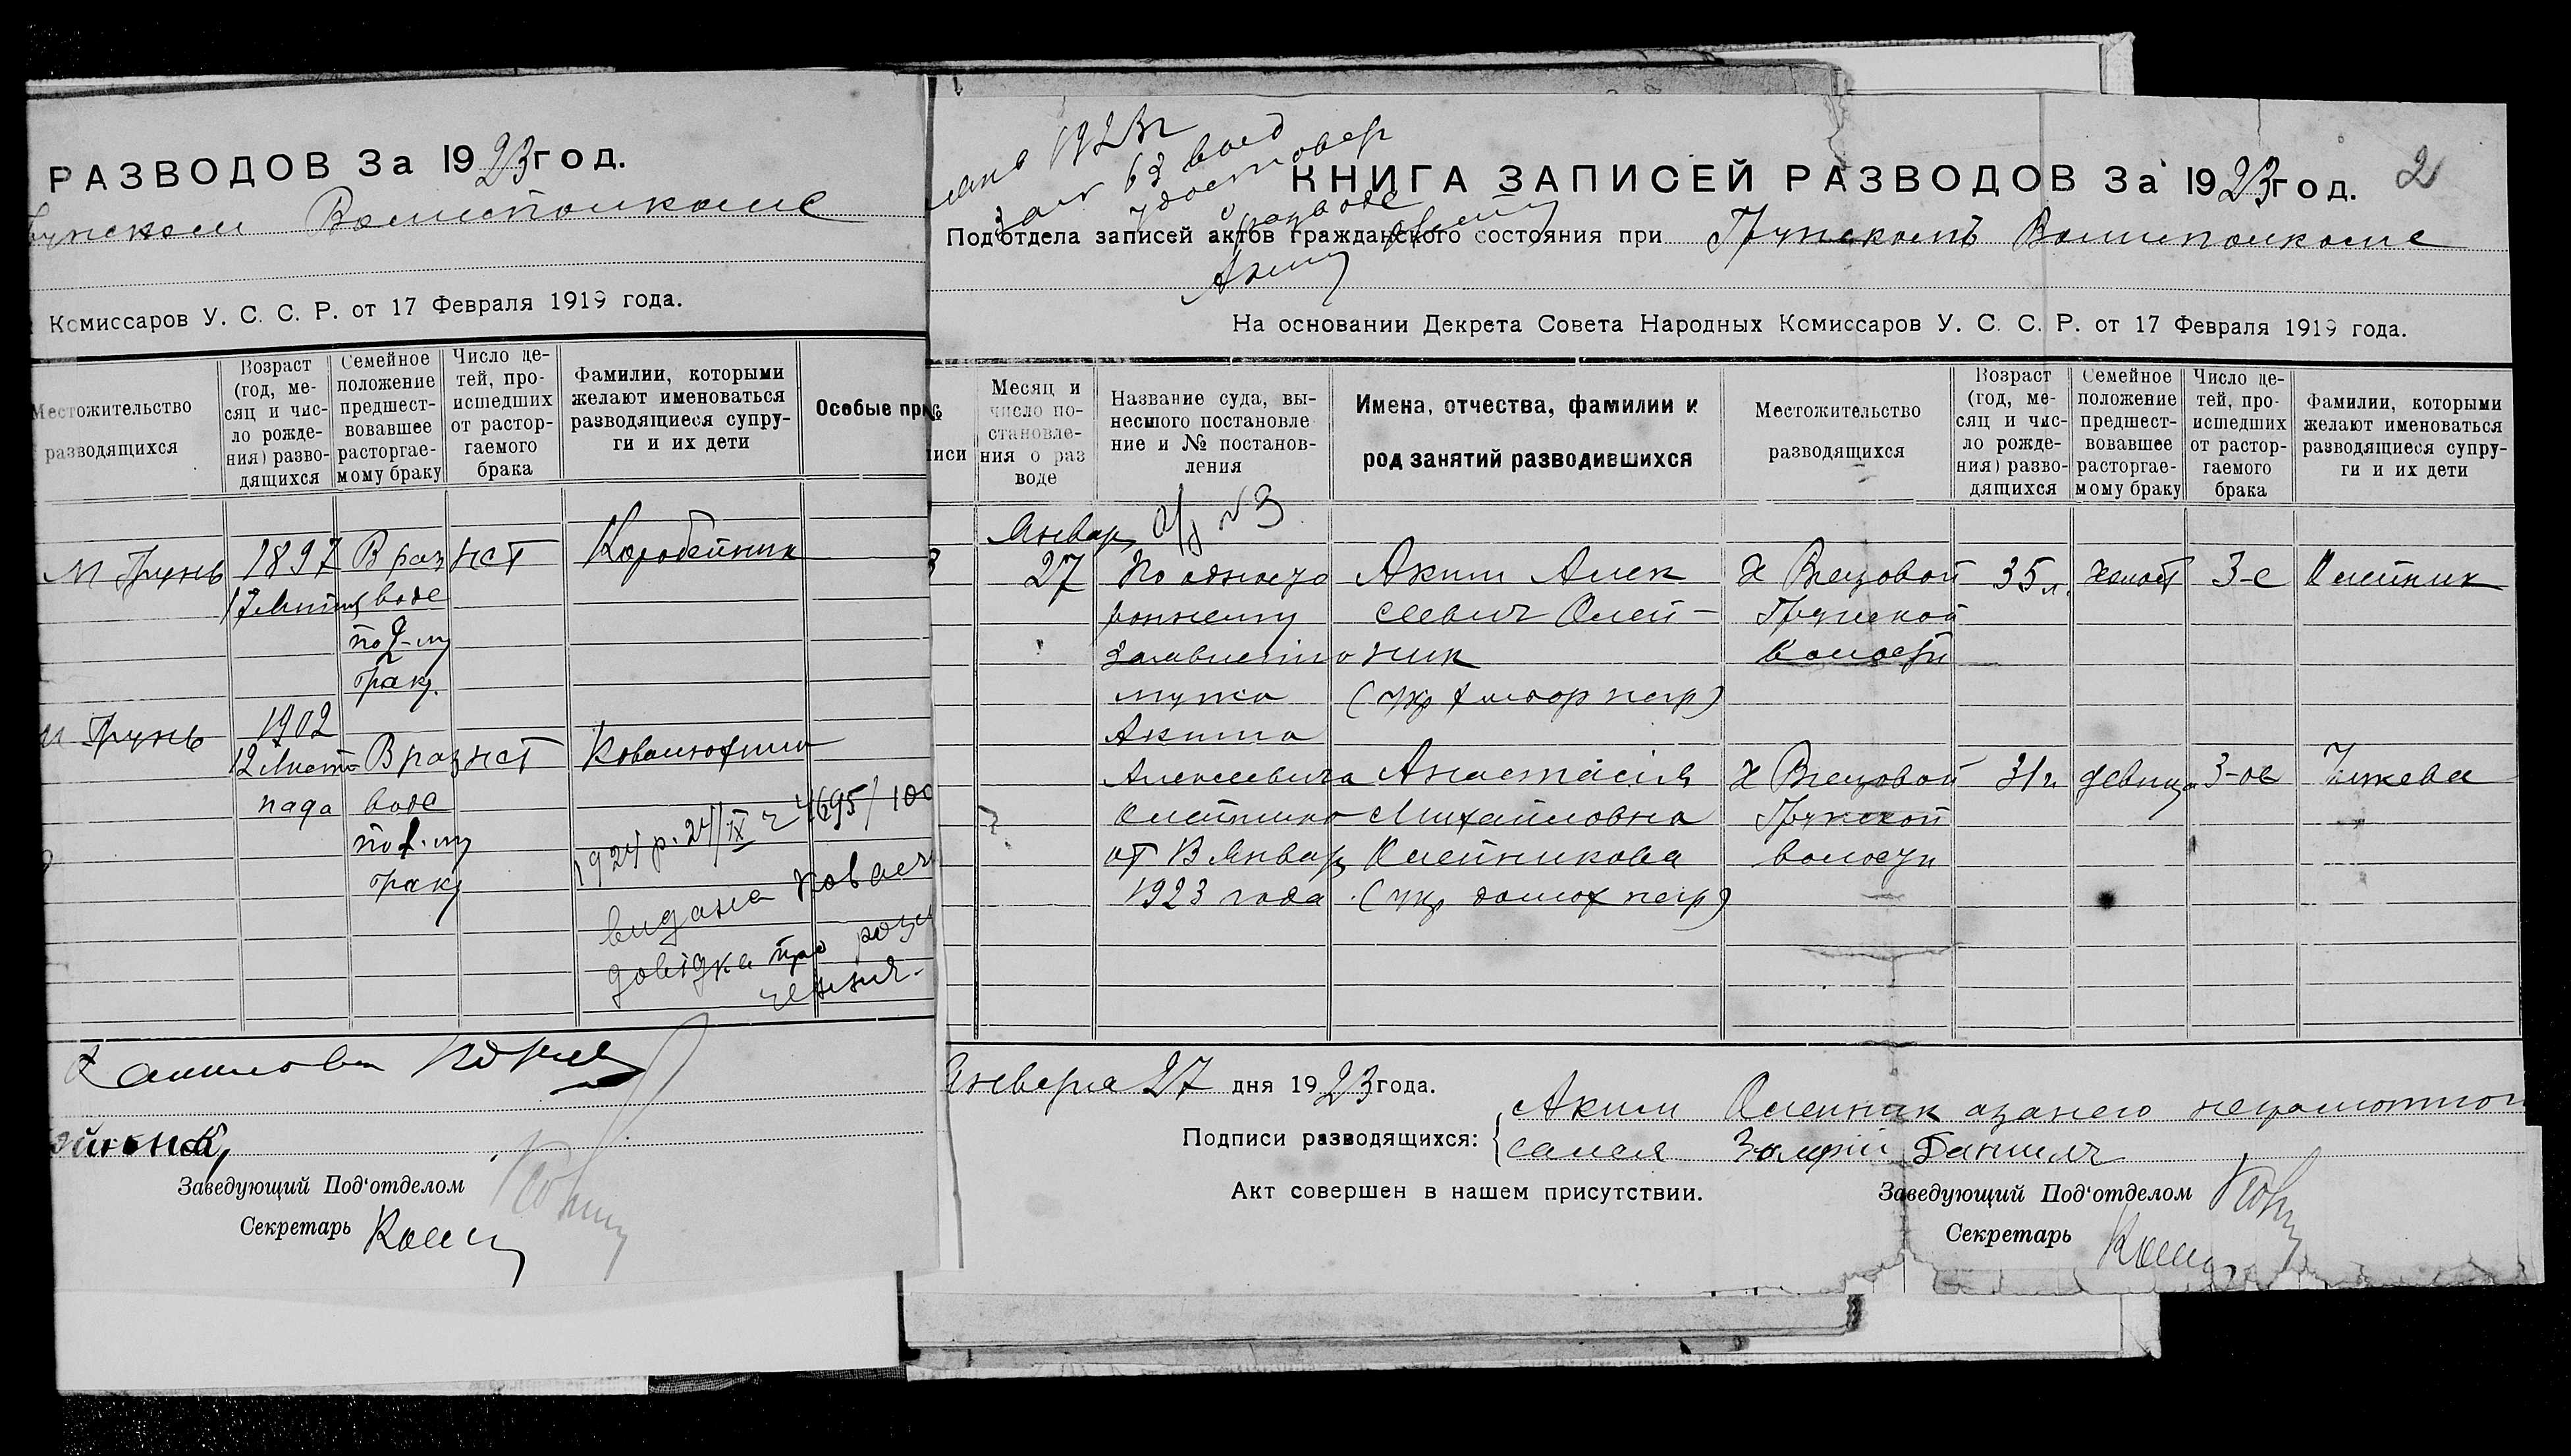 РАЗВОДОВ За 1923 год.
Волисполкоме
Комиссаров У. С. С. Р. от 17 Февраля 1919 года.
Местожительство
разводящихся
Возраст
(год, ме-
сяц и чис-
ло рожде-
ния) разво-
дящихся
Семейное
положение
предшест-
вовавшее
расторгае-
мому браку
Число де-
тей, про-
исшедших
от растор-
гаемого
брака
Фамилии, которыми
желают именоваться
разводящиеся супру-
ги и их дети
Особые при
м Грунь 1897 В раз нет Коробейник
воде
по 2-му
браку.
м Грунь 1902
12 Листо- В раз нет
пада воде
по 1-му
браку
1924 р. 24/IX ч 4695/100
видана
довідка про розл
чення.
Заведующий Под'отделом
Секретарь
1923 г
за № 63 выд
удостовер
о разводе
Аким
КНИГА ЗАПИСЕЙ РАЗВОДОВ За 1923 год. 2
Под'отдела записей актов гражданского состояния при Грунском Волисполкоме
На основании Декрета Совета Народных Комиссаров У. С. С. Р. от 17 Февраля 1919 года.
№
иси
Месяц и
число по-
становле-
ния о раз
воде
Название суда, вы-
несшого постановле
ние и № постанов-
ления
Имена, отчества, фамилии и
род занятий разводившихся
Местожительство
разводящихся
Возраст
(год, ме-
сяц и чис-
ло рожде-
ния) разво-
дящихся
Семейное
положение
предшест-
вовавшее
расторгае-
мому браку
Число де-
тей, про-
исшедших
от растор-
гаемого
брака
Фамилии, которыми
желают именоваться
разводящиеся супру-
ги и их дети
Январ № 3
3 27 По односто Аким Алек Х 35 л. холост 3-е Олейник
роннему сеевич Олей- Грунской
заявлению ник волости
мужа (укр хлебор негр)
Акима
Алексеевича Анастасия Х 31 г. девица 3-ое
Олейника Михайловна Грунской
от Январ Олейникова волости
1923 года (укр домох негр)
Января 27 дня 1923 года.
Подписи разводящихся:
Аким Олейник а за него неграмотного
Даниил
Акт совершен в нашем присутствии.
Заведующий Под'отделом
Секретарь